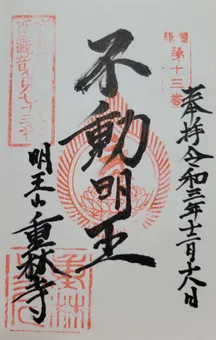 第十三番
奉拝 令和三年十二月十八日
不動明王
明王山 重林寺